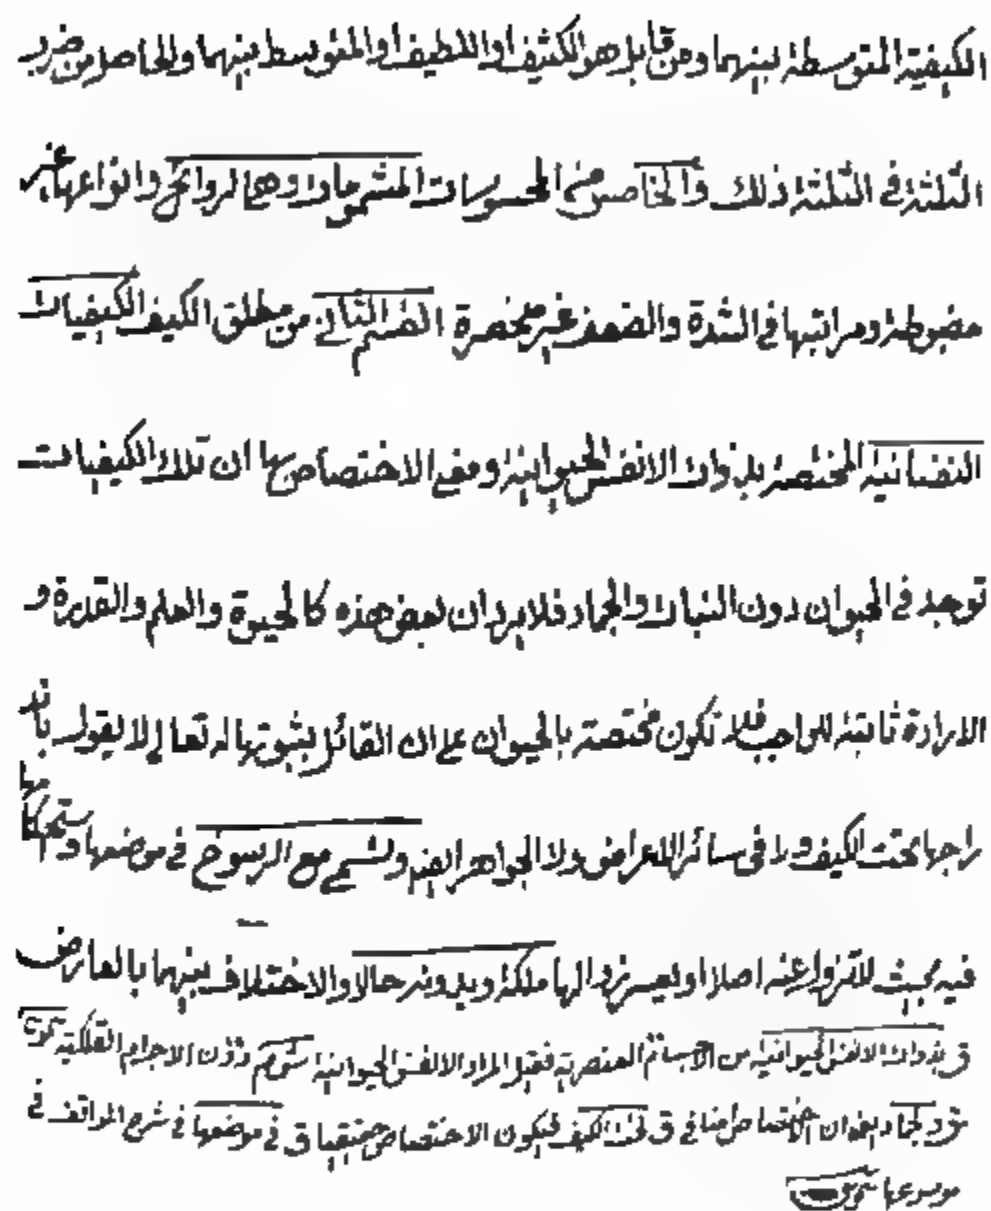 الكيفية المتوسطة بينهما ومن قابل هو الكثيف او اللطيف او المتوسط بينهما والحاصل من ضرب
الثلثة في الثلثة ذلك والخامس من المحسوسات المشمومات وهي الروائح وانواعها غير
مضبوطة ومراتبها في الشدة والضعف غير منحصرة القسم الثاني من مطلق الكيف الكيفيات
النفسانية المختصة بذوات الانفس الحيوانية ومعنى الاختصاص بها ان تلك الكيفيات
توجد في الحيوان دون النبات والجماد فلا يرد ان بعض هذه كالحيوة والعلم والقدرة و
الارادة ثابتة للواجب فلا تكون مختصة بالحيوان على ان القائل بثبوتها له تعالى لا يقول باند
راجها تحت الكيف ولا في سائر الاعراض ولا الجواهر ايضا وتسمى مع الرسوخ في موضعها واستحكامها
فيه بحيث لا تزول عنه اصلا او يعسر زوالها ملكة وبدونه حالا والاختلاف بينهما بالعارض
ق بذوات الانفس الحيوانية من الاجسام العنصرية فقيل المراد الانفس الحيوانية دون الاجرام الفلكية
ق والجماد ان الاختصاص ق تحت الكيف فيكون الاختصاص حقيقيا ق في موضعها في شرح المواقف في
موضوعها